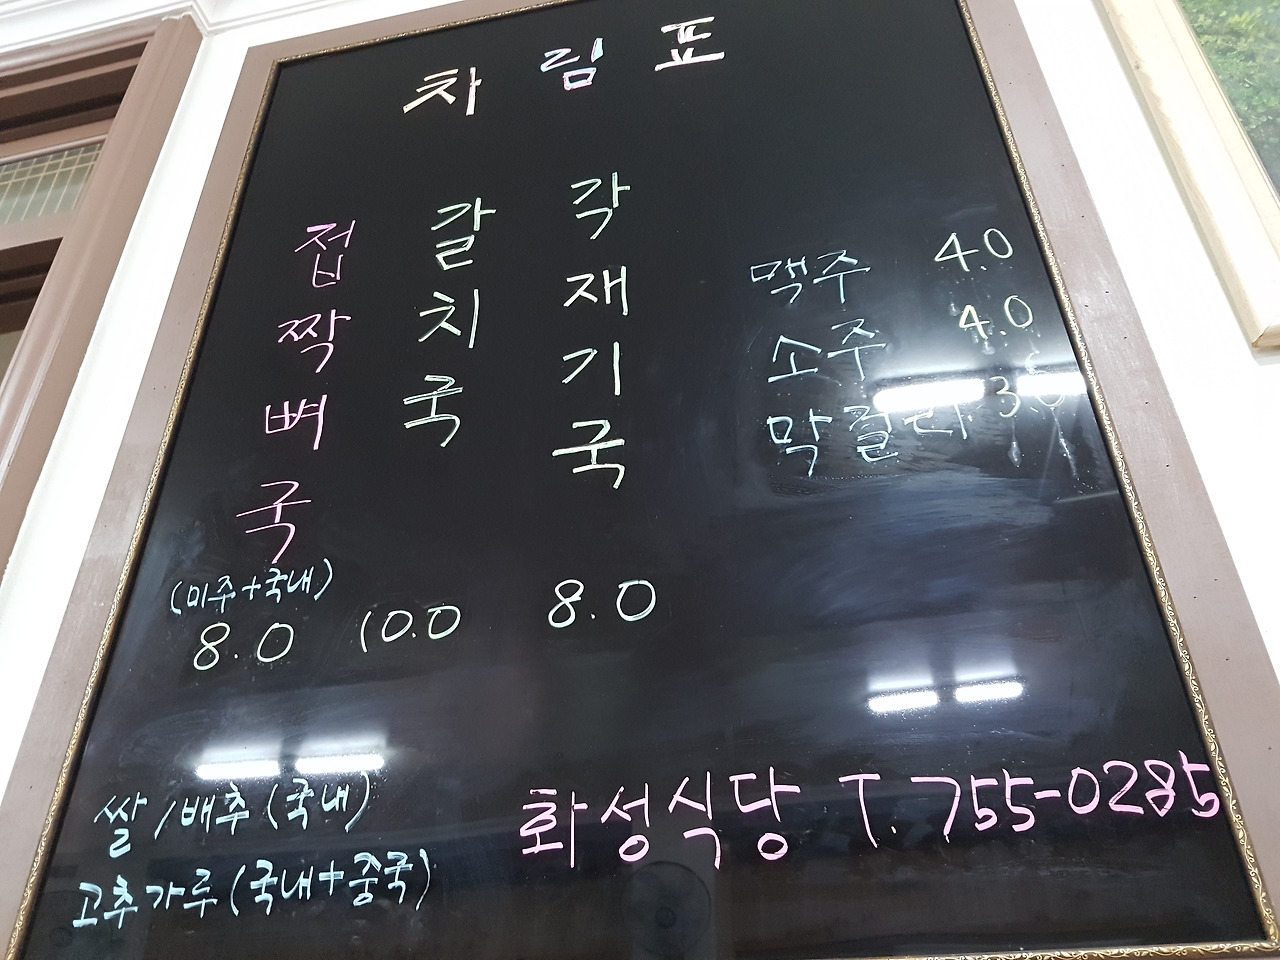 차림표
접짝뼈국
(미주+국내)
8.0
갈치국
10.0
각재기국
8.0
맥주 4.0
소주 4.0
막걸리 3.0
쌀/배추(국내)
고추가루(국내+중국)
화성식당 T.755-0285